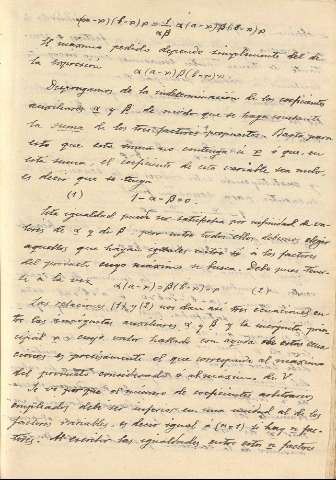 (a-x)(b-x)x = 1/αβ α(a-x)β(b-x)x
El máximo pedido depende simplemente del de
la expresión
α(a-x)β(b-x)x
Dispongamos de la indeterminación de los coeficientes
auxiliares α y β de modo que se haga constante
la suma de los tres factores propuestos. Basta para
esto que esta suma no contenga a x o que, en
esta suma, el coeficiente de esta variable sea nulo,
es decir que se tenga
(1) 1-α-β=0
Esta igualdad puede ser satisfecha por infinidad de va-
lores de α y de β pero entre todos ellos debemos elegir
aquellos que hagan iguales entre sí a los factores
del producto cuyo máximo se busca. Debe pues tener-
se a la vez
α(a-x)=β(b-x)=x (2)
Las relaciones (1) y (2) nos dan así tres ecuaciones en-
tre las incógnitas auxiliares α y β y la incógnita prin-
cipal x cuyo valor hallado con ayuda de estas ecua-
ciones es precisamente el que corresponde al máximo
del producto considerado o al máximo de V.
Se ve por que el número de coeficientes arbitrarios
empleados debe ser inferior en una unidad al de los
factores variables, es decir igual a (n-1) si hay n fac-
tores. Al escribir las igualdades entre estos n factores